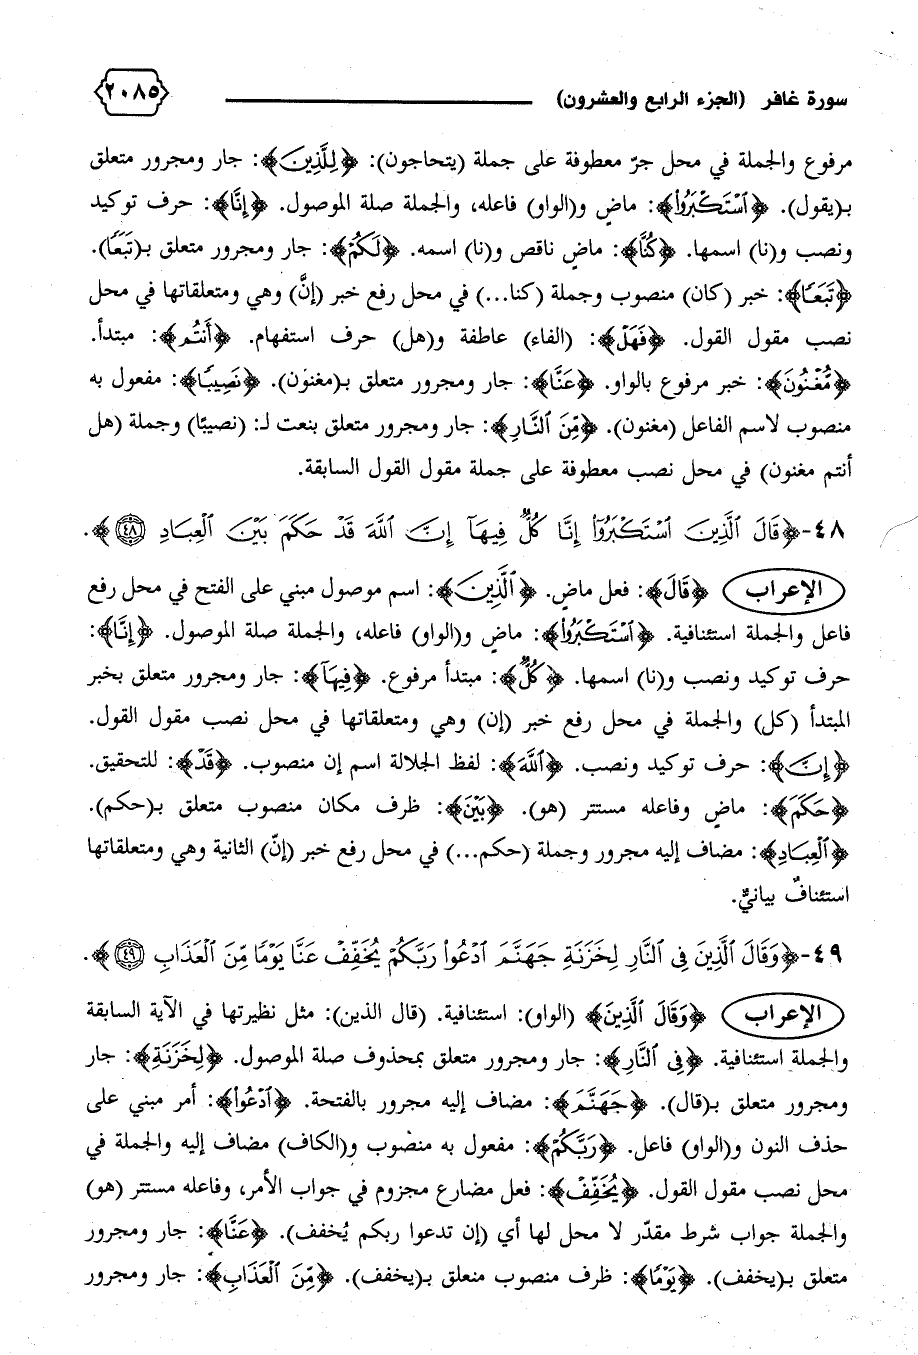 سورة غافر (الجزء الرابع والعشرون) ٢٠٨٥
مرفوع والجملة في محل جرّ معطوفة على جملة (يتحاجون): ﴿لِلَّذِينَ﴾: جار ومجرور متعلق
بـ(يقول). ﴿ٱسۡتَكۡبَرُوٓاْ﴾: ماضٍ و(الواو) فاعله، والجملة صلة الموصول. ﴿إِنَّا﴾: حرف توكيد
ونصب و(نا) اسمها. ﴿كُنَّا﴾: ماضٍ ناقص و(نا) اسمه. ﴿لَكُمۡ﴾: جار ومجرور متعلق بـ(تَبَعًا).
﴿تَبَعٗا﴾: خبر (كان) منصوب وجملة (كنا...) في محل رفع خبر (إنَّ) وهي ومتعلقاتها في محل
نصب مقول القول. ﴿فَهَلۡ﴾: (الفاء) عاطفة و(هل) حرف استفهام. ﴿أَنتُم﴾: مبتدأ.
﴿مُّغۡنُونَ﴾: خبر مرفوع بالواو. ﴿عَنَّا﴾: جار ومجرور متعلق بـ(مغنون). ﴿نَصِيبٗا﴾: مفعول به
منصوب لاسم الفاعل (مغنون). ﴿مِّنَ ٱلنَّارِ﴾: جار ومجرور متعلق بنعت لـ: (نصيبًا) وجملة (هل
أنتم مغنون) في محل نصب معطوفة على جملة مقول القول السابقة.
٤٨-﴿قَالَ ٱلَّذِينَ ٱسۡتَكۡبَرُوٓاْ إِنَّا كُلّٞ فِيهَآ إِنَّ ٱللَّهَ قَدۡ حَكَمَ بَيۡنَ ٱلۡعِبَادِ ٤٨﴾.
الإعراب ﴿قَالَ﴾: فعل ماضٍ. ﴿ٱلَّذِينَ﴾: اسم موصول مبني على الفتح في محل رفع
فاعل والجملة استئنافية. ﴿ٱسۡتَكۡبَرُوٓاْ﴾: ماضٍ و(الواو) فاعله، والجملة صلة الموصول. ﴿إِنَّا﴾:
حرف توكيد ونصب و(نا) اسمها. ﴿كُلّٞ﴾: مبتدأ مرفوع. ﴿فِيهَآ﴾: جار ومجرور متعلق بخبر
المبتدأ (كل) والجملة في محل رفع خبر (إن) وهي ومتعلقاتها في محل نصب مقول القول.
﴿إِنَّ﴾: حرف توكيد ونصب. ﴿ٱللَّهَ﴾: لفظ الجلالة اسم إن منصوب. ﴿قَدۡ﴾: للتحقيق.
﴿حَكَمَ﴾: ماضٍ وفاعله مستتر (هو). ﴿بَيۡنَ﴾: ظرف مكان منصوب متعلق بـ(حكم).
﴿ٱلۡعِبَادِ﴾: مضاف إليه مجرور وجملة (حكم...) في محل رفع خبر (إنّ) الثانية وهي ومتعلقاتها
استئنافٌ بيانيٌّ.
٤٩-﴿وَقَالَ ٱلَّذِينَ فِي ٱلنَّارِ لِخَزَنَةِ جَهَنَّمَ ٱدۡعُواْ رَبَّكُمۡ يُخَفِّفۡ عَنَّا يَوۡمٗا مِّنَ ٱلۡعَذَابِ ٤٩﴾.
الإعراب ﴿وَقَالَ ٱلَّذِينَ﴾ (الواو): استئنافية. (قال الذين): مثل نظيرتها في الآية السابقة
والجملة استئنافية. ﴿فِي ٱلنَّارِ﴾: جار ومجرور متعلق بمحذوف صلة الموصول. ﴿لِخَزَنَةِ﴾: جار
ومجرور متعلق بـ(قال). ﴿جَهَنَّمَ﴾: مضاف إليه مجرور بالفتحة. ﴿ٱدۡعُواْ﴾: أمر مبني على
حذف النون و(الواو) فاعل. ﴿رَبَّكُمۡ﴾: مفعول به منصوب و(الكاف) مضاف إليه والجملة في
محل نصب مقول القول. ﴿يُخَفِّفۡ﴾: فعل مضارع مجزوم في جواب الأمر، وفاعله مستتر (هو)
والجملة جواب شرط مقدّر لا محل لها أي (إن تدعوا ربكم يُخفف). ﴿عَنَّا﴾: جار ومجرور
متعلق بـ(يخفف). ﴿يَوۡمٗا﴾: ظرف منصوب متعلق بـ(يخفف). ﴿مِّنَ ٱلۡعَذَابِ﴾: جار ومجرور